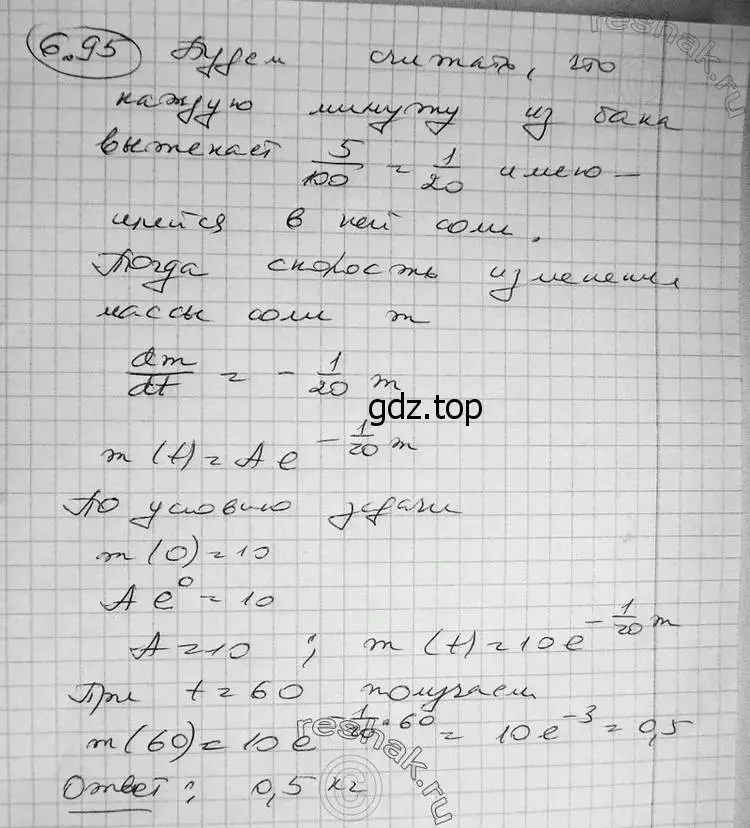 6.95 Будем считать, что
каждую минуту из бака
вытекает 5/100 = 1/20 имею-
щейся в ней соли.
Тогда скорость изменения
массы соли m
dm/dt = - 1/20 m
m(t) = A e^(-1/20 m)
По условию задачи
m(0) = 10
A e^0 = 10
A = 10 ; m(t) = 10 e^(-1/20 m)
При t = 60 получаем
m(60) = 10 e^(-1/20 · 60) = 10 e^(-3) = 0,5
Ответ: 0,5 кг
gdz.top
reshak.ru
reshak.ru